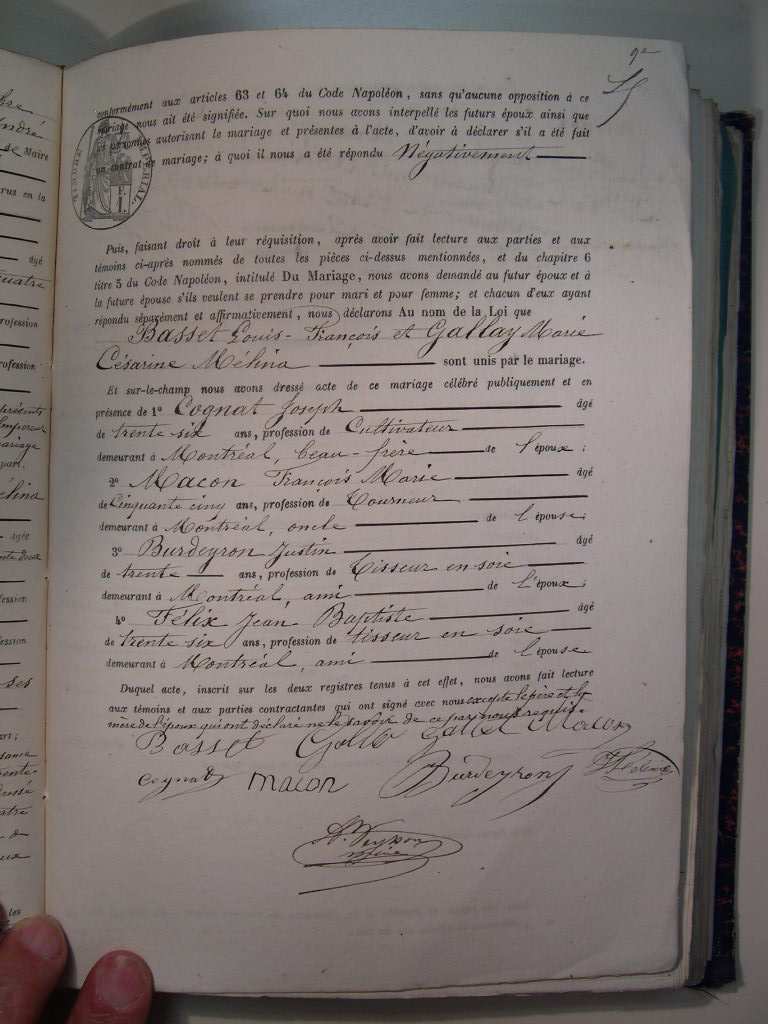 9e
conformément aux articles 63 et 64 du Code Napoléon, sans qu'aucune opposition à ce
mariage nous ait été signifiée. Sur quoi nous avons interpellé les futurs époux ainsi que
les personnes autorisant le mariage et présentes à l'acte, d'avoir à déclarer s'il a été fait
un contrat de mariage; à quoi il nous a été répondu Négativement
IMPERIAL
Puis, faisant droit à leur réquisition, après avoir fait lecture aux parties et aux
témoins ci-après nommés de toutes les pièces ci-dessus mentionnées, et du chapitre 6
titre 5 du Code Napoléon, intitulé Du Mariage, nous avons demandé au futur époux et à
la future épouse s'ils veulent se prendre pour mari et pour femme; et chacun d'eux ayant
répondu séparément et affirmativement, nous déclarons Au nom de la Loi que
Basset Louis-François et Gallay Marie
Césarine Mélina sont unis par le mariage.
Et sur-le-champ nous avons dressé acte de ce mariage célébré publiquement et en
présence de 1° Cognat Joseph âgé
de trente six ans, profession de Cultivateur
demeurant à Montréal, beau-frère de l'époux;
2° Macon François Marie âgé
de Cinquante cinq ans, profession de Tourneur
demeurant à Montréal, oncle de l'épouse;
3° Burdeyron Justin âgé
de trente ans, profession de Tisseur en soie
demeurant à Montréal, ami de l'époux;
4° Félix Jean-Baptiste âgé
de trente six ans, profession de tisseur en soie
demeurant à Montréal, ami de l'épouse
Duquel acte, inscrit sur les deux registres tenus à cet effet, nous avons fait lecture
aux témoins et aux parties contractantes qui ont signé avec nous excepté le père et la
mère de l'époux qui ont déclaré ne le savoir de ce par nous requis.
Basset Gallet Macon
Cognat macon Burdeyron
maire